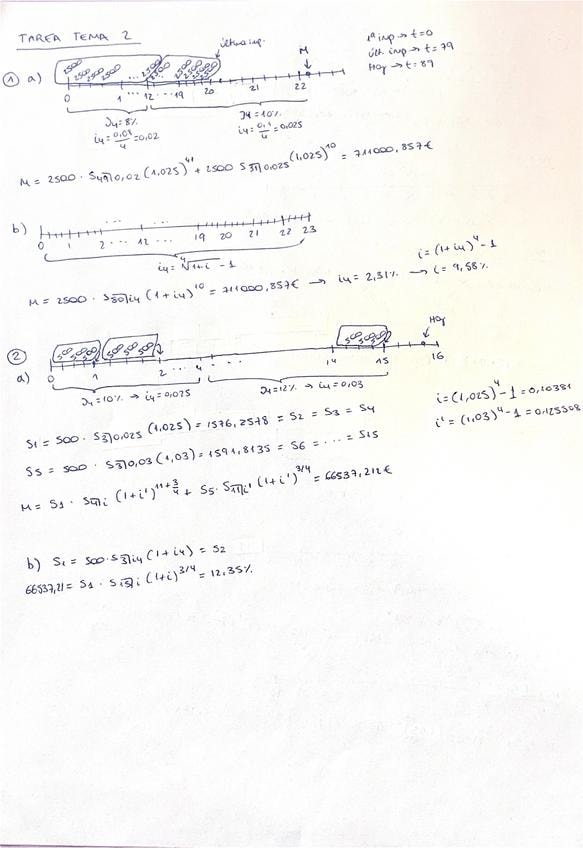 TAREA TEMA 2
última imp.
1ª imp → t=0
últ. imp → t=79
Hoy → t=89
M
① a)
2500 2500 2500 ... 2500
0 1 ... 12 ... 19 20 21 22
J4=8% J4=10%
i4=0,08/4=0,02 i4=0,1/4=0,025
M = 2500 · S49⌉0,02 (1,025)^41 + 2500 S31⌉0,025 (1,025)^10 = 711000,857€
b)
0 1 2 ... 12 ... 19 20 21 22 23
i4 = ⁴√1+i - 1
i=(1+i4)^4-1
M = 2500 · S80⌉i4 (1+i4)^10 = 711000,857€ → i4 = 2,31% → i = 9,58%
②
500 500 500 500 500 500 500 500 500
Hoy
a)
0 1 2 ... 4 ... 14 15 16
J4=10% → i4=0,025 J4=12% → i4=0,03
i=(1,025)^4-1=0,10381
i'=(1,03)^4-1=0,125508
S1 = 500 · S3⌉0,025 (1,025) = 1576,2578 = S2 = S3 = S4
S5 = 500 · S3⌉0,03 (1,03) = 1591,8135 = S6 = ... = S15
M = S1 · S4⌉i (1+i')^11+3/4 + S5 · S11⌉i' (1+i')^3/4 = 66537,212€
b) S1 = 500·S3⌉i4 (1+i4) = S2
66537,21 = S1 · S15⌉i (1+i)^3/4 = 12,35%